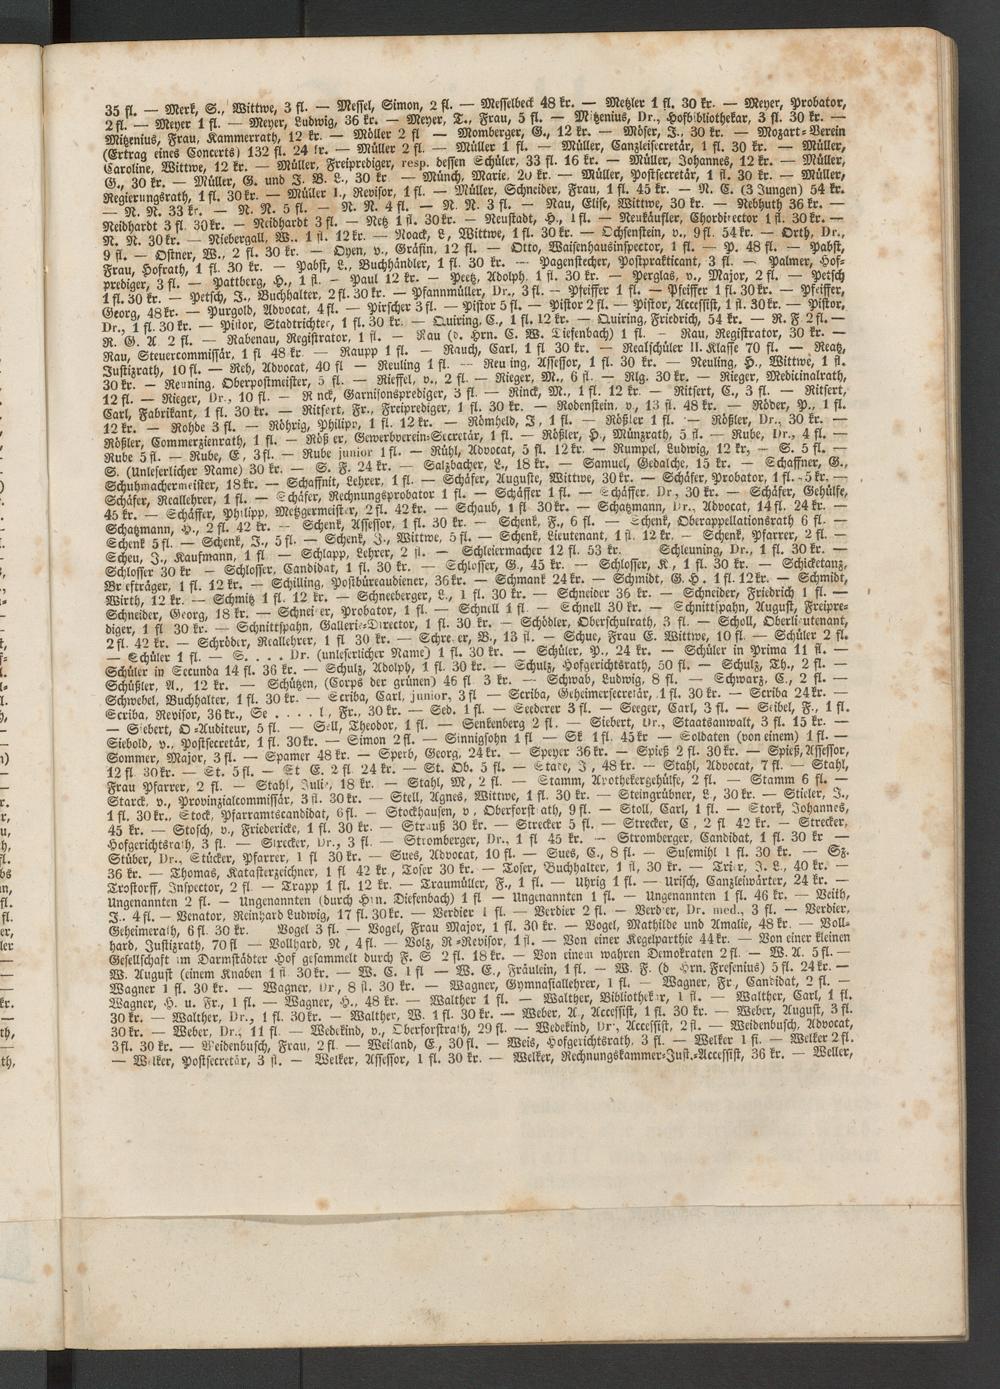 35 fl. — Merk, S., Wittwe, 3 fl. — Messel, Simon, 2 fl. — Messelbeck 48 kr. — Metzler 1 fl. 30 kr. — Meyer, Probator,
2 fl. — Meyer 1 fl. — Meyer, Ludwig, 36 kr. — Meyer, T., Frau, 5 fl. — Mitzenius, Dr., Hofbibliothekar, 3 fl. 30 kr. —
Mitzenius, Frau, Kammerrath, 12 kr. — Möller 2 fl — Momberger, G., 12 kr. — Möser, J., 30 kr. — Mozart-Verein
(Ertrag eines Concerts) 132 fl. 24 kr. — Müller 2 fl. — Müller 1 fl. — Müller, Canzleisecretär, 1 fl. 30 kr. — Müller,
Caroline, Wittwe, 12 kr. — Müller, Freiprediger, resp. dessen Schüler, 33 fl. 16 kr. — Müller, Johannes, 12 kr. — Müller,
G., 30 kr. — Müller, G. und J. B. L., 30 kr. — Münch, Marie, 20 kr. — Müller, Postsecretär, 1 fl. 30 kr. — Müller,
Regierungsrath, 1 fl. 30 kr. — Müller 1., Revisor, 1 fl. — Müller, Schneider, Frau, 1 fl. 45 kr. — N. C. (3 Jungen) 54 kr.
— N. N. 33 kr. — N. N. 5 fl. — N. N. 4 fl. — N. N. 3 fl. — Nau, Elise, Wittwe, 30 kr. — Nebhuth 36 kr. —
Neidhardt 3 fl. 30 kr. — Neidhardt 3 fl. — Netz 1 fl. 30 kr. — Neustadt, H., 1 fl. — Neukäufler, Chordirector 1 fl. 30 kr. —
N. N. 30 kr. — Niebergall, W., 1 fl. 12 kr. — Noack, L, Wittwe, 1 fl. 30 kr. — Ochsenstein, v., 9 fl. 54 kr. — Orth, Dr.,
9 fl. — Ostner, W., 2 fl. 30 kr. — Oyen, v., Gräfin, 12 fl. — Otto, Waisenhausinspector, 1 fl. — P. 48 fl. — Pabst,
Frau, Hofrath, 1 fl. 30 kr. — Pabst, L., Buchhändler, 1 fl. 30 kr. — Pagenstecher, Postprakticant, 3 fl. — Palmer, Hof-
prediger, 3 fl. — Pattberg, H., 1 fl. — Paul 12 kr. — Peetz, Adolph, 1 fl. 30 kr. — Perglas, v., Major, 2 fl. — Petsch
1 fl. 30 kr. — Petsch, J., Buchhalter, 2 fl. 30 kr. — Pfannmüller, Dr., 3 fl. — Pfeiffer 1 fl. — Pfeiffer 1 fl. 30 kr. — Pfeiffer,
Georg, 48 kr. — Purgold, Advocat, 4 fl. — Pirscher 3 fl. — Pistor 5 fl. — Pistor 2 fl. — Pistor, Accessist, 1 fl. 30 kr. — Pistor,
Dr., 1 fl. 30 kr. — Pistor, Stadtrichter, 1 fl. 30 kr. — Quiring, C., 1 fl. 12 kr. — Quiring, Friedrich, 54 kr. — R. F 2 fl. —
R. G. A. 2 fl. — Rabenau, Registrator, 1 fl. — Rau (v. Hrn. C. W. Tiefenbach) 1 fl. — Rau, Registrator, 30 kr. —
Rau, Steuercommissär, 1 fl 48 kr. — Raupp 1 fl. — Rauch, Carl, 1 fl. 30 kr. — Realschüler II. Klasse 70 fl. — Reatz,
Justizrath, 10 fl. — Reh, Advocat, 40 fl — Reuling 1 fl. — Reuling, Assessor, 1 fl. 30 kr. — Reuling, H., Wittwe, 1 fl.
30 kr. — Reuning, Oberpostmeister, 5 fl. — Rieffel, v., 2 fl. — Rieger, M., 6 fl. — Rlg. 30 kr. — Rieger, Medicinalrath,
12 fl. — Rieger, Dr., 10 fl. — Rinck, Garnisonsprediger, 3 fl. — Rinck, M., 1 fl. 12 kr. — Ritsert, C., 3 fl. — Ritsert,
Carl, Fabrikant, 1 fl. 30 kr. — Ritsert, Fr., Freiprediger, 1 fl. 30 kr. — Rodenstein, v., 13 fl. 48 kr. — Röder, P., 1 fl.
12 kr. — Rohde 3 fl. — Röhrig, Philipp, 1 fl. 12 kr. — Römheld, J., 1 fl. — Rößler 1 fl. — Rößler, Dr., 30 kr. —
Rößler, Commerzienrath, 1 fl. — Rößler, Gewerbverein-Secretär, 1 fl. — Rößler, H., Münzrath, 5 fl. — Rube, Dr., 4 fl. —
Rube 5 fl. — Rube, E, 3 fl. — Rube junior 1 fl. — Rühl, Advocat, 5 fl. 12 kr. — Rumpel, Ludwig, 12 kr, — S. 5 fl. —
S. (Unleserlicher Name) 30 kr. — S. F. 24 kr. — Salzbacher, L., 18 kr. — Samuel, Gedalche, 15 kr. — Schaffner, G.,
Schuhmachermeister, 18 kr. — Schaffnit, Lehrer, 1 fl. — Schäfer, Auguste, Wittwe, 30 kr. — Schäfer, Probator, 1 fl. 5 kr. —
Schäfer, Reallehrer, 1 fl. — Schäfer, Rechnungsprobator 1 fl. — Schäffer 1 fl. — Schäffer, Dr., 30 kr. — Schäfer, Gehülfe,
45 kr. — Schäffer, Philipp, Metzgermeister, 2 fl. 42 kr. — Schaub, 1 fl. 30 kr. — Schatzmann, Dr., Advocat, 14 fl. 24 kr. —
Schatzmann, H., 2 fl. 42 kr. — Schenk, Assessor, 1 fl. 30 kr. — Schenk, F., 6 fl. — Schenk, Oberappellationsrath 6 fl. —
Schenk 5 fl. — Schenk, J., 5 fl. — Schenk, J., Wittwe, 5 fl. — Schenk, Lieutenant, 1 fl. 12 kr. — Schenk, Pfarrer, 2 fl. —
Scheu, J., Kaufmann, 1 fl — Schlapp, Lehrer, 2 fl. — Schleiermacher 12 fl. 53 kr. Schleuning, Dr., 1 fl. 30 kr. —
Schlosser 30 kr — Schlosser, Candidat, 1 fl. 30 kr. — Schlosser, G., 45 kr. — Schlosser, K., 1 fl. 30 kr. — Schicketanz,
Briefträger, 1 fl. 12 kr. — Schilling, Postbüreaudiener, 36 kr. — Schmank 24 kr. — Schmidt, G. H. 1 fl. 12 kr. — Schmidt,
Wirth, 12 kr. — Schmitz 1 fl. 12 kr. — Schneeberger, L., 1 fl. 30 kr. — Schneider 36 kr. — Schneider, Friedrich 1 fl. —
Schneider, Georg, 18 kr. — Schneider, Probator, 1 fl. — Schnell 1 fl — Schnell 30 kr. — Schnittspahn, August, Freipre-
diger, 1 fl 30 kr. — Schnittspahn, Gallerie-Director, 1 fl. 30 kr. — Schödler, Oberschulrath, 3 fl. — Scholl, Oberlieutenant,
2 fl. 42 kr. — Schröder, Reallehrer, 1 fl 30 kr. — Schreier, B., 13 fl. — Schue, Frau E. Wittwe, 10 fl. — Schüler 2 fl.
— Schüler 1 fl. — S. . . . Dr. (unleserlicher Name) 1 fl. 30 kr. — Schüler, P., 24 kr. — Schüler in Prima 11 fl. —
Schüler in Secunda 14 fl. 36 kr. — Schulz, Adolph, 1 fl. 30 kr. — Schulz, Hofgerichtsrath, 50 fl. — Schulz, Th., 2 fl. —
Schüßler, A., 12 kr. — Schützen, (Corps der grünen) 46 fl 3 kr. — Schwab, Ludwig, 8 fl. — Schwarz, C., 2 fl. —
Schwebel, Buchhalter, 1 fl. 30 kr. — Scriba, Carl, junior, 3 fl — Scriba, Geheimersecretär, 1 fl. 30 kr. — Scriba 24 kr. —
Scriba, Revisor, 36 kr., Se . . . . l, Fr., 30 kr. — Seb. 1 fl. — Seederer 3 fl. — Seeger, Carl, 3 fl. — Seibel, F., 1 fl.
— Siebert, O-Auditeur, 5 fl. — Sell, Theodor, 1 fl. — Senkenberg 2 fl. — Siebert, Dr., Staatsanwalt, 3 fl. 15 kr. —
Siebold, v., Postsecretär, 1 fl. 30 kr. — Simon 2 fl. — Sinnigsohn 1 fl — Sk. 1 fl. 45 kr — Soldaten (von einem) 1 fl. —
Sommer, Major, 3 fl. — Spamer 48 kr. — Sperb, Georg, 24 kr. — Speyer 36 kr. — Spieß 2 fl. 30 kr. — Spieß, Assessor,
12 fl 30 kr. — St. 5 fl. — St C. 2 fl. 24 kr. — St. Ob. 5 fl. — Stade, J, 48 kr. — Stahl, Advocat, 7 fl. — Stahl,
Frau Pfarrer, 2 fl. — Stahl, Julie, 18 kr. — Stahl, M, 2 fl. — Stamm, Apothekergehülfe, 2 fl. — Stamm 6 fl. —
Starck, v., Provinzialcommissär, 3 fl. 30 kr. — Stell, Agnes, Wittwe, 1 fl. 30 kr. — Steingrübner, L., 30 kr. — Stieler, J.,
1 fl. 30 kr., Stock, Pfarramtscandidat, 6 fl. — Stockhausen, v, Oberforstrath, 9 fl. — Stoll, Carl, 1 fl. — Stork, Johannes,
45 kr. — Stosch, v., Friedericke, 1 fl. 30 kr. — Strauß 30 kr. — Strecker 5 fl. — Strecker, C, 2 fl 42 kr. — Strecker,
Hofgerichtsrath, 3 fl. — Strecker, Dr., 3 fl. — Stromberger, Dr., 1 fl 45 kr. — Stromberger, Candidat, 1 fl. 30 kr —
Stüber, Dr., Stücker, Pfarrer, 1 fl 30 kr. — Sues, Advocat, 10 fl. — Sues, C., 8 fl. — Susemihl 1 fl. 30 kr. — Sz.
36 kr. — Thomas, Katasterzeichner, 1 fl 42 kr., Toser 30 kr. — Toser, Buchhalter, 1 fl, 30 kr. — Trier, J. L., 40 kr. —
Trostorff, Inspector, 2 fl. — Trapp 1 fl. 12 kr. — Traumüller, F., 1 fl. — Uhrig 1 fl. — Urisch, Canzleiwärter, 24 kr. —
Ungenannten 2 fl. — Ungenannten (durch Hrn. Diefenbach) 1 fl — Ungenannten 1 fl. — Ungenannten 1 fl. 46 kr. — Veith,
J., 4 fl. — Venator, Reinhard Ludwig, 17 fl. 30 kr. — Verdier 1 fl. — Verdier 2 fl. — Verdier, Dr. med., 3 fl. — Verdier,
Geheimerath, 6 fl. 30 kr. Vogel 3 fl. — Vogel, Frau Major, 1 fl. 30 kr. — Vogel, Mathilde und Amalie, 48 kr. — Voll-
hard, Justizrath, 70 fl — Vollhard, R, 4 fl. — Volz, R-Revisor, 1 fl. — Von einer Kegelparthie 44 kr. — Von einer kleinen
Gesellschaft im Darmstädter Hof gesammelt durch F. S 2 fl. 18 kr. — Von einem wahren Demokraten 2 fl. — W. A. 5 fl. —
W. August (einem Knaben 1 fl 30 kr. — W. C. 1 fl — W. E., Fräulein, 1 fl. — W. F. (d Hrn. Fresenius) 5 fl. 24 kr. —
Wagner 1 fl. 30 kr. — Wagner, Dr, 8 fl. 30 kr. — Wagner, Gymnasiallehrer, 1 fl. — Wagner, Fr, Candidat, 2 fl. —
Wagner, H. u. Fr., 1 fl. — Wagner, H., 48 kr. — Walther 1 fl. — Walther, Bibliothekar, 1 fl. — Walther, Carl, 1 fl.
30 kr. — Walther, Dr., 1 fl. 30 kr. — Walther, W. 1 fl. 30 kr. — Weber, A, Accessist, 1 fl. 30 kr. — Weber, August, 3 fl.
30 kr. — Weber, Dr., 11 fl. — Wedekind, v., Oberforstrath, 29 fl. — Wedekind, Dr., Accessist, 2 fl. — Weidenbusch, Advocat,
3 fl. 30 kr. — Weidenbusch, Frau, 2 fl. — Weiland, E, 30 fl. — Weis, Hofgerichtsrath, 3 fl. — Welker 1 fl. — Welker 2 fl.
— Welker, Postsecretär, 3 fl. — Welker, Assessor, 1 fl. 30 kr. — Welker, Rechnungskammer-Just.-Accessist, 36 kr. — Weller,